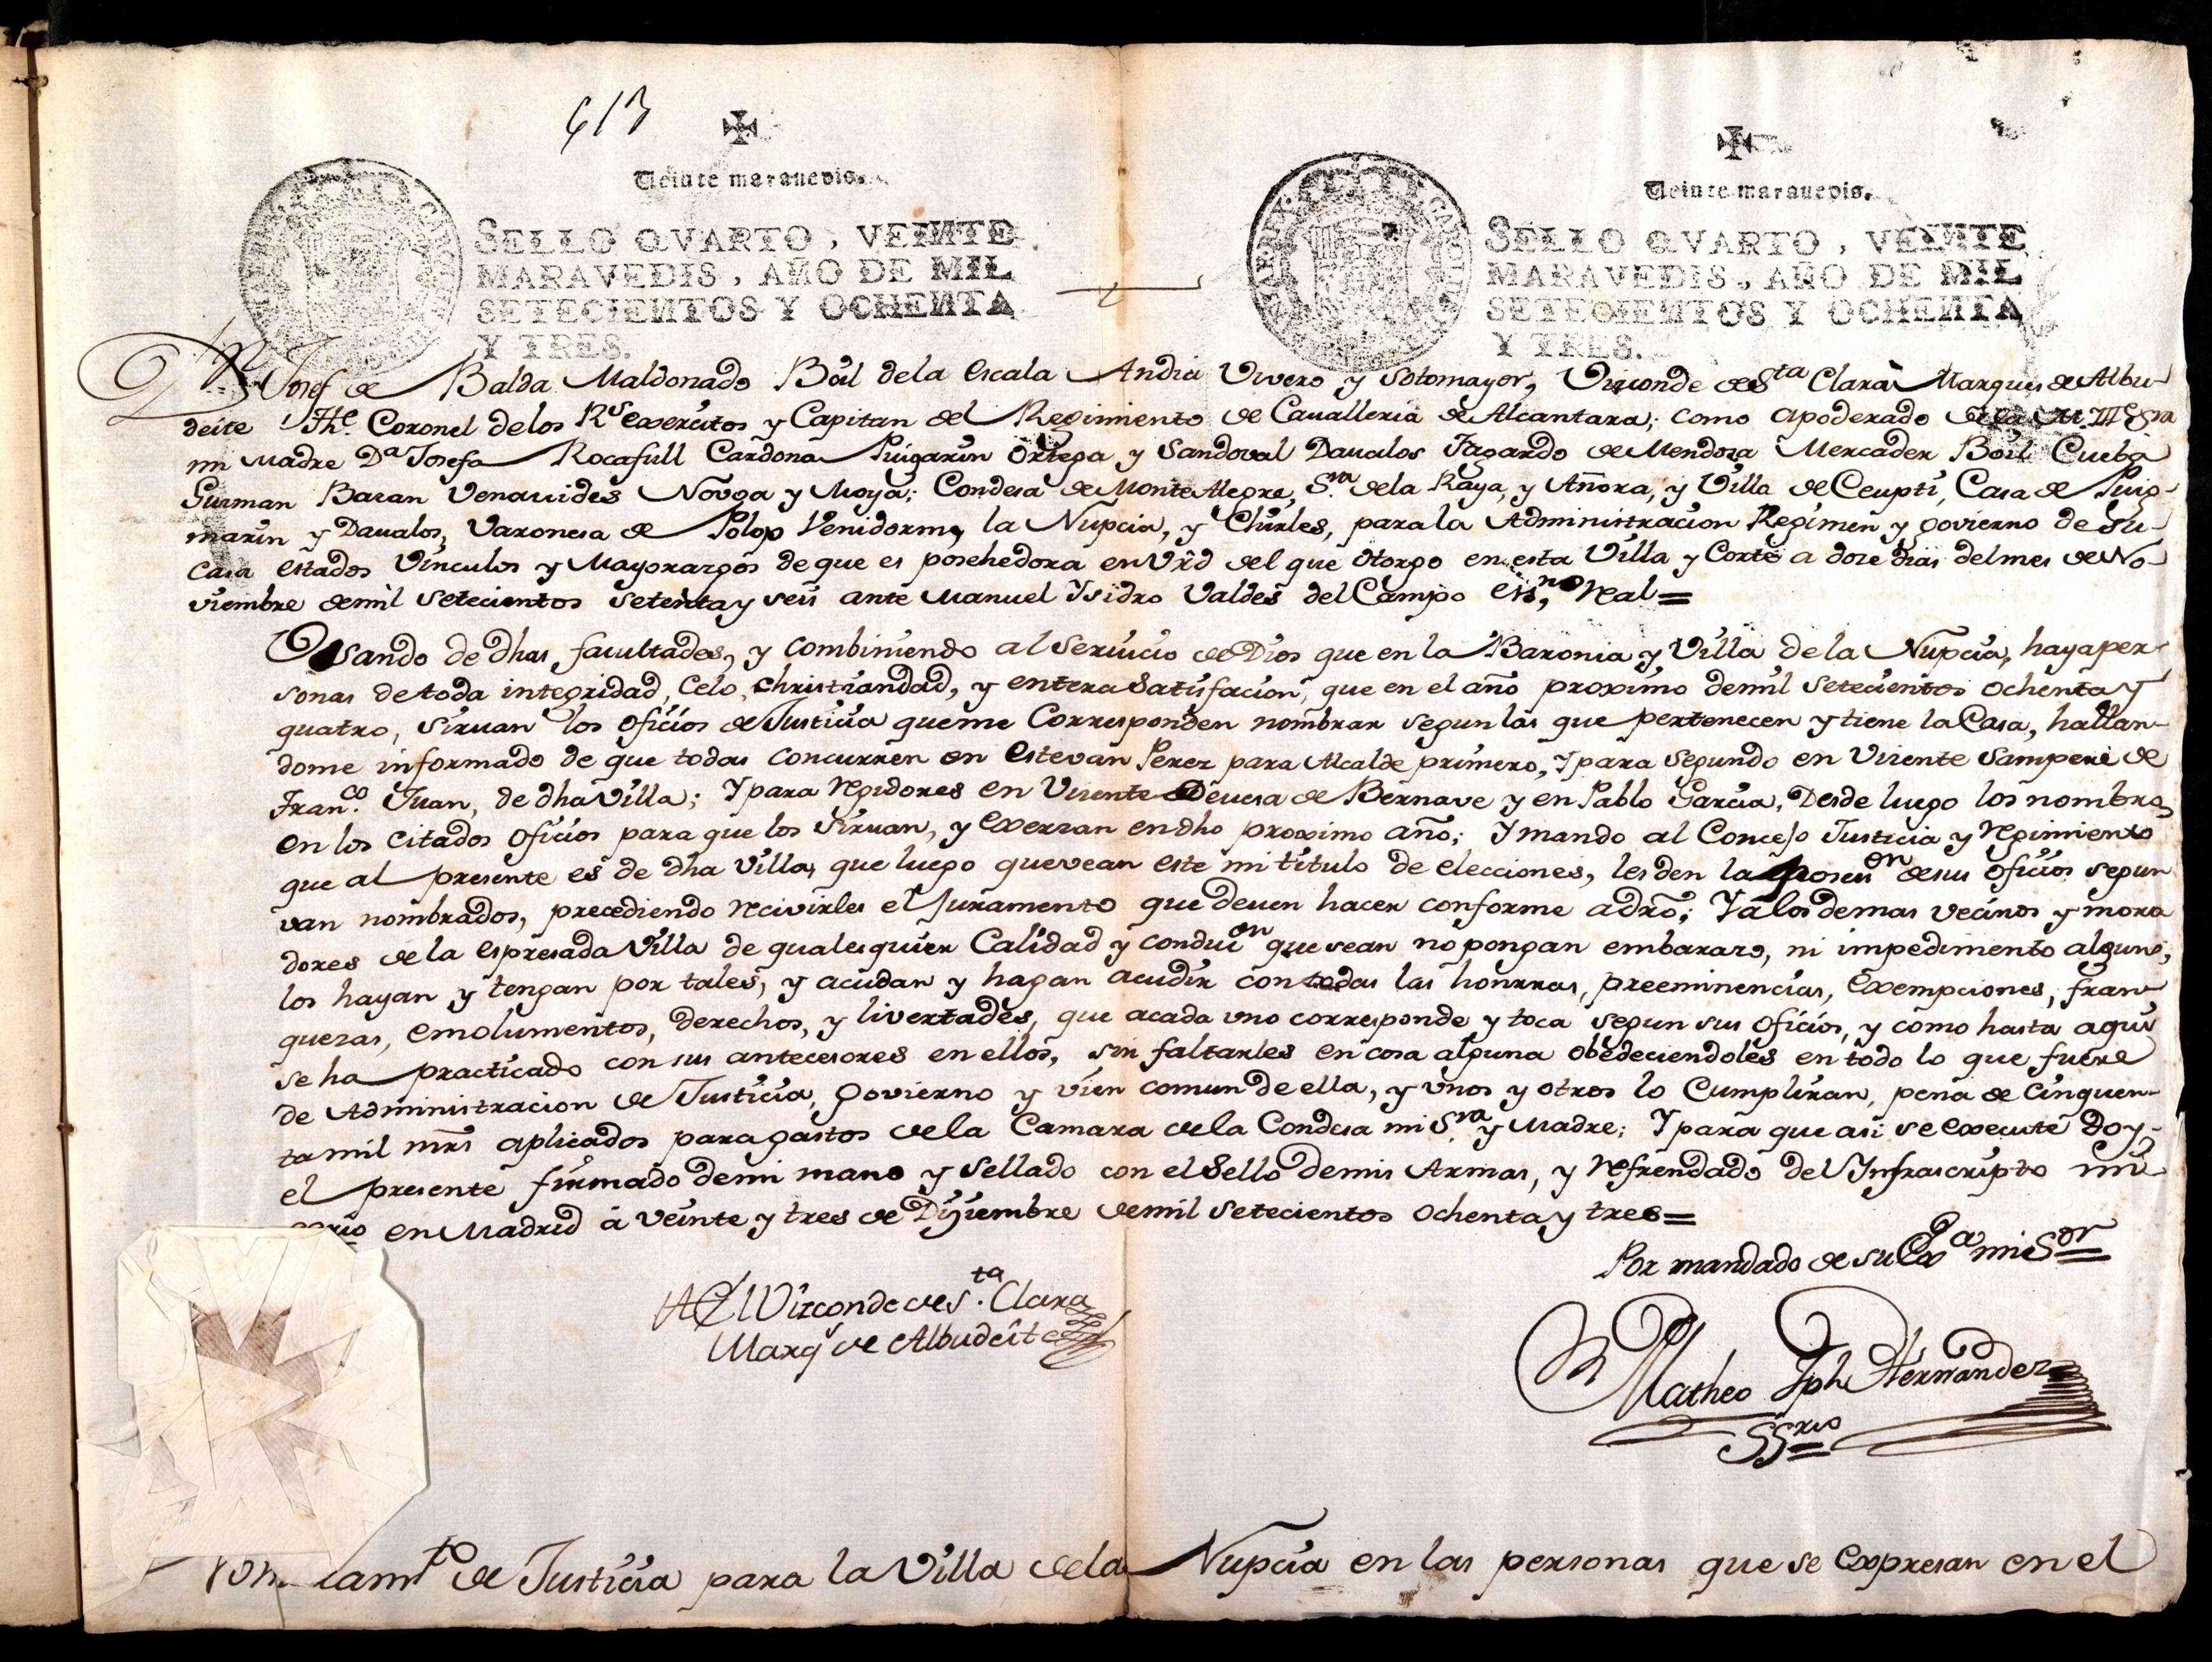 613
Veinte maravedis.
SELLO QVARTO, VEINTE
MARAVEDIS, AÑO DE MIL
SETECIENTOS Y OCHENTA
Y TRES.
Veinte maravedis.
SELLO QVARTO, VEINTE
MARAVEDIS, AÑO DE MIL
SETECIENTOS Y OCHENTA
Y TRES.
Dn Josef de Balda Maldonado Boil dela Escala Andia Vivero y Sotomayor, Vizconde de Sta Clara Marques de Albu-
deite The. Coronel delos Rs exercitos y Capitan del Regimiento de Cavalleria de Alcantara; como apoderado de la
mi Madre Da Josefa Rocafull Cardona Puigarin Ortega y Sandoval Davalos Fagardo de Mendoza Mercader Boil Cueba
Guzman Bazan Venavides Novoa y Moya; Condesa de Monte Alegre, S.ra dela Raya, y Añora, y Villa de Ceupti, Casa de Puig-
marin y Davalos, Varonesa de Polop Venidorm, la Nupcia, y Chirles, para la Administracion Regimen y govierno de su
Casa estados Vinculos y Mayorazgos de que es posehedora en Vrd del que otorgo en esta Villa y Corte a doze dias del mes de No-
viembre demil setecientos setenta y seis ante Manuel Ysidro Valdes del Campo essno. Real=
Usando de dhas facultades, y combiniendo al servicio de Dios que en la Baronia y Villa de la Nupcia, haya per-
sonas de toda integridad, Celo, christiandad, y entera satisfacion, que en el año proximo demil setecientos ochenta y
quatro, sirvan los oficios de Justicia que me Corresponden nombrar segun las que pertenecen y tiene la Casa, hallan-
dome informado de que todas concurren en Estevan Perez para Alcalde primero, Y para segundo en Vicente Sampere de
Fran.co Juan, de dha Villa; Y para Regidores en Vicente Devesa de Bernave y en Pablo Garcia, Desde luego los nombro
en los citados oficios para que los sirvan, y exerzan en dho proximo año; Y mando al Concejo Justicia y Regimiento
que al presente es de dha Villa, que luego que vean este mi titulo de elecciones, les den la poses.on de sus oficios segun
van nombrados, precediendo recivirles el Juramento que deven hacer conforme a dro; Y a los demas vecinos y mora
dores de la espresada Villa de qualesquier Calidad y condicion que sean no pongan embarazo, ni impedimento alguno,
los hayan y tengan por tales, y acudan y hagan acudir con todas las honrras, preeminencias, Exempciones, fran-
quezas, emolumentos, derechos, y livertades, que acada uno corresponde y toca segun sus oficios, y como hasta aqui
se ha practicado con sus antecesores en ellos, sin faltarles en cosa alguna obedeciendoles en todo lo que fuere
de Administracion de Justicia, govierno y vien comun de ella, y unos y otros lo Cumpliran, pena de cinquen-
ta mil mrs aplicados para gastos de la Camara de la Condesa mi S.ra y Madre; Y para que asi se execute Doy
el presente firmado de mi mano y sellado con el Sello de mis Armas, y Refrendado del Ynfrascripto mi
en Madrid á veinte y tres de Diziembre demil setecientos ochenta y tres=
Por mandado de su Exa mi Sor
El Vizconde de S.ta Clara
Marqs de Albudeite
Matheo Jph Hernandez
SSrio
de Justicia para la Villa dela Nupcia en las personas que se expresan en el